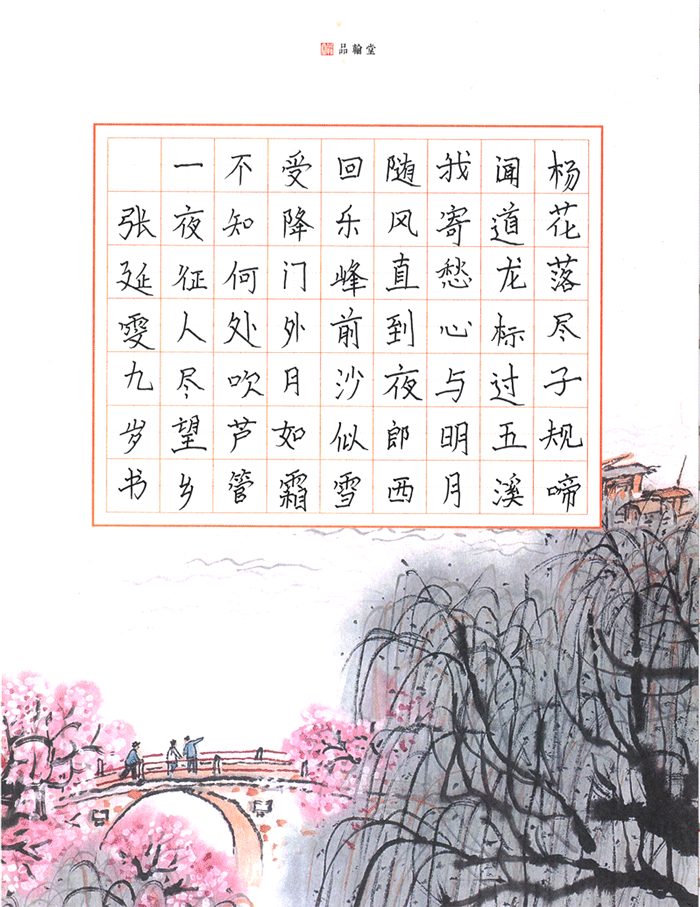 品翰堂
杨花落尽子规啼
闻道龙标过五溪
我寄愁心与明月
随风直到夜郎西
回乐峰前沙似雪
受降门外月如霜
不知何处吹芦管
一夜征人尽望乡
张延雯九岁书